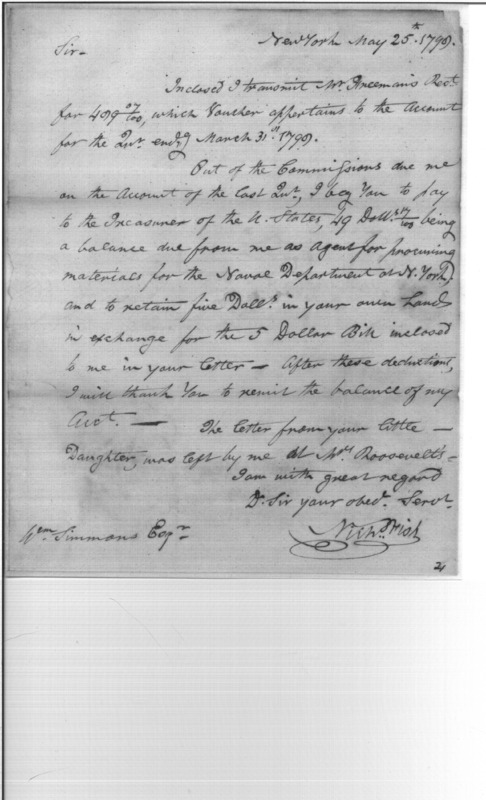 New York May 25th. 1799.
Sir -
Inclosed I transmit Mr. Freeman's Rect.
for 499 07/100, which Voucher appertains to the Account
for the Qur. endg. March 31st. 1799.
Out of the Commissions due me
on the Account of the last Qur., I beg You to pay
to the Treasurer of the U. States, 49 Dolls. /100 being
a balance due from me as agent for procuring
materials for the Naval Department at N. York,
and to retain five Dolls. in your own hands
in exchange for the 5 Dollar Bill inclosed
to me in your letter - After these deductions,
I will thank You to remit the balance of my
Acct. —
The letter from your little —
Daughter, was left by me at Mrs. Roosevelt's -
I am with great regard
Dr. Sir your obedt. Servt.
Nichs. Fish
Wm. Simmons Esqr.